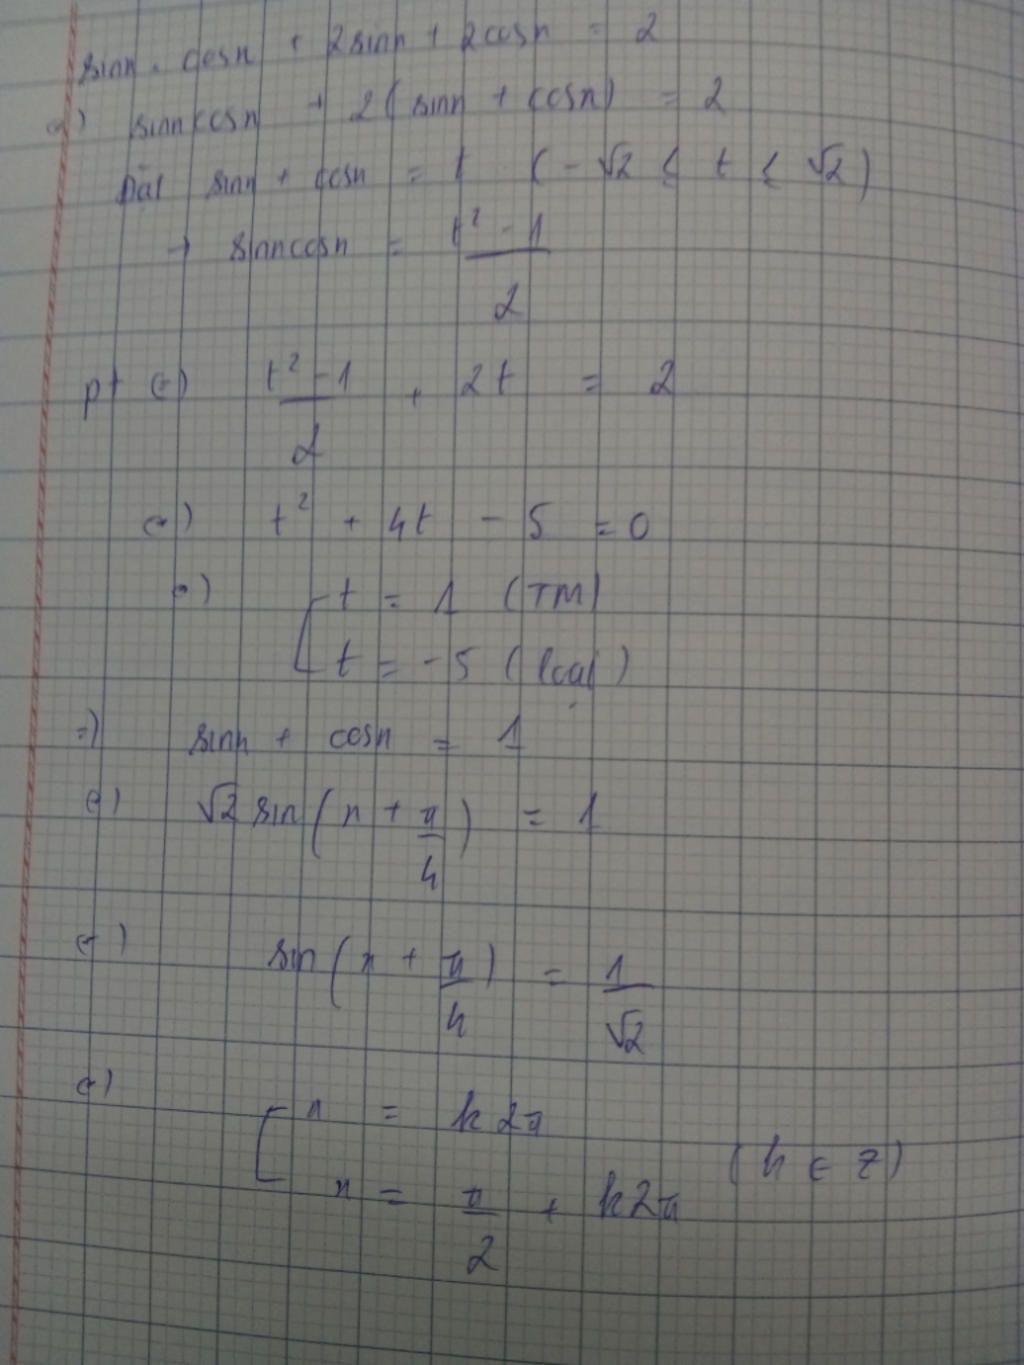 sinx . cosx + 2sinx + 2cosx = 2
⇔) sinxcosx + 2(sinx + cosx) = 2
Đặt sinx + cosx = t (-√2 ≤ t ≤ √2)
→ sinxcosx = t² - 1 / 2
pt ⇔) t² - 1 / 2 + 2t = 2
⇔) t² + 4t - 5 = 0
⇔) [ t = 1 (TM)
t = -5 (loại)
=) sinx + cosx = 1
⇔) √2 sin(x + π/4) = 1
⇔) sin(x + π/4) = 1/√2
⇔) [ x = k2π
x = π/2 + k2π (k ∈ Z)